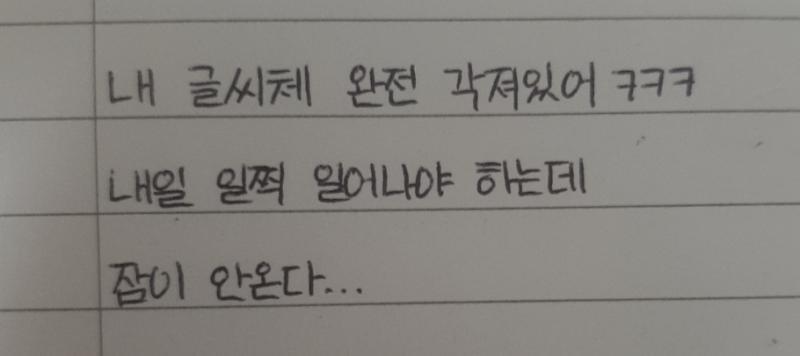 내 글씨체 완전 각져있어 ㅋㅋㅋ
내일 일찍 일어나야 하는데
잠이 안온다...